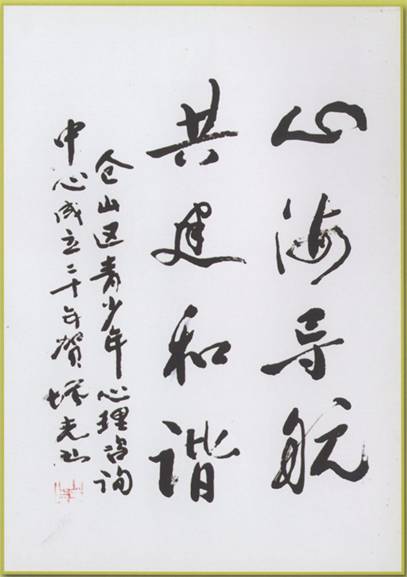 心海导航
共建和谐
仓山区青少年心理咨询
中心成立二十年贺